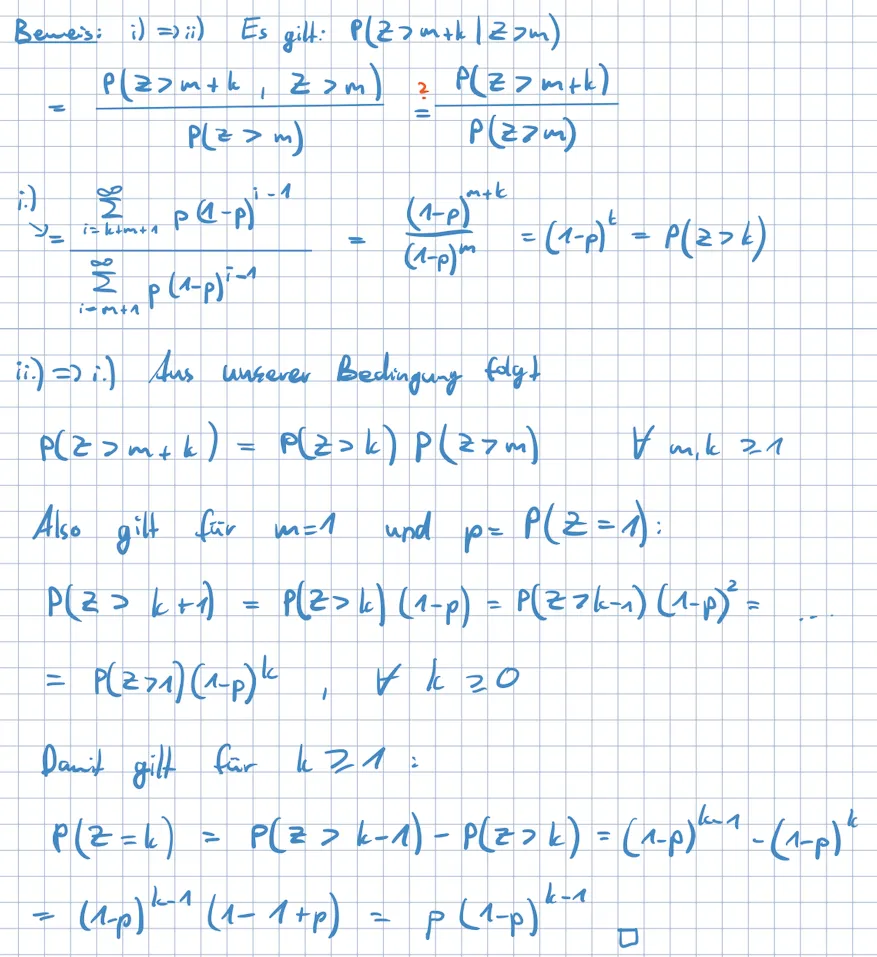 Beweis: i) => ii) Es gilt: P(Z > m+k | Z > m)
= P(Z > m+k , Z > m) / P(Z > m) ?= P(Z > m+k) / P(Z > m)
i.) = ∑_{i=k+m+1}^{∞} p(1-p)^{i-1} / ∑_{i=m+1}^{∞} p(1-p)^{i-1} = (1-p)^{m+k} / (1-p)^m = (1-p)^k = P(Z > k)
ii.) => i.) Aus unserer Bedingung folgt
P(Z > m+k) = P(Z > k) P(Z > m) ∀ m,k ≥ 1
Also gilt für m=1 und p = P(Z = 1):
P(Z > k+1) = P(Z > k) (1-p) = P(Z > k-1) (1-p)^2 = ...
= P(Z > 1) (1-p)^k , ∀ k ≥ 0
Damit gilt für k ≥ 1 :
P(Z = k) = P(Z > k-1) - P(Z > k) = (1-p)^{k-1} - (1-p)^k
= (1-p)^{k-1} (1-1+p) = p (1-p)^{k-1} □